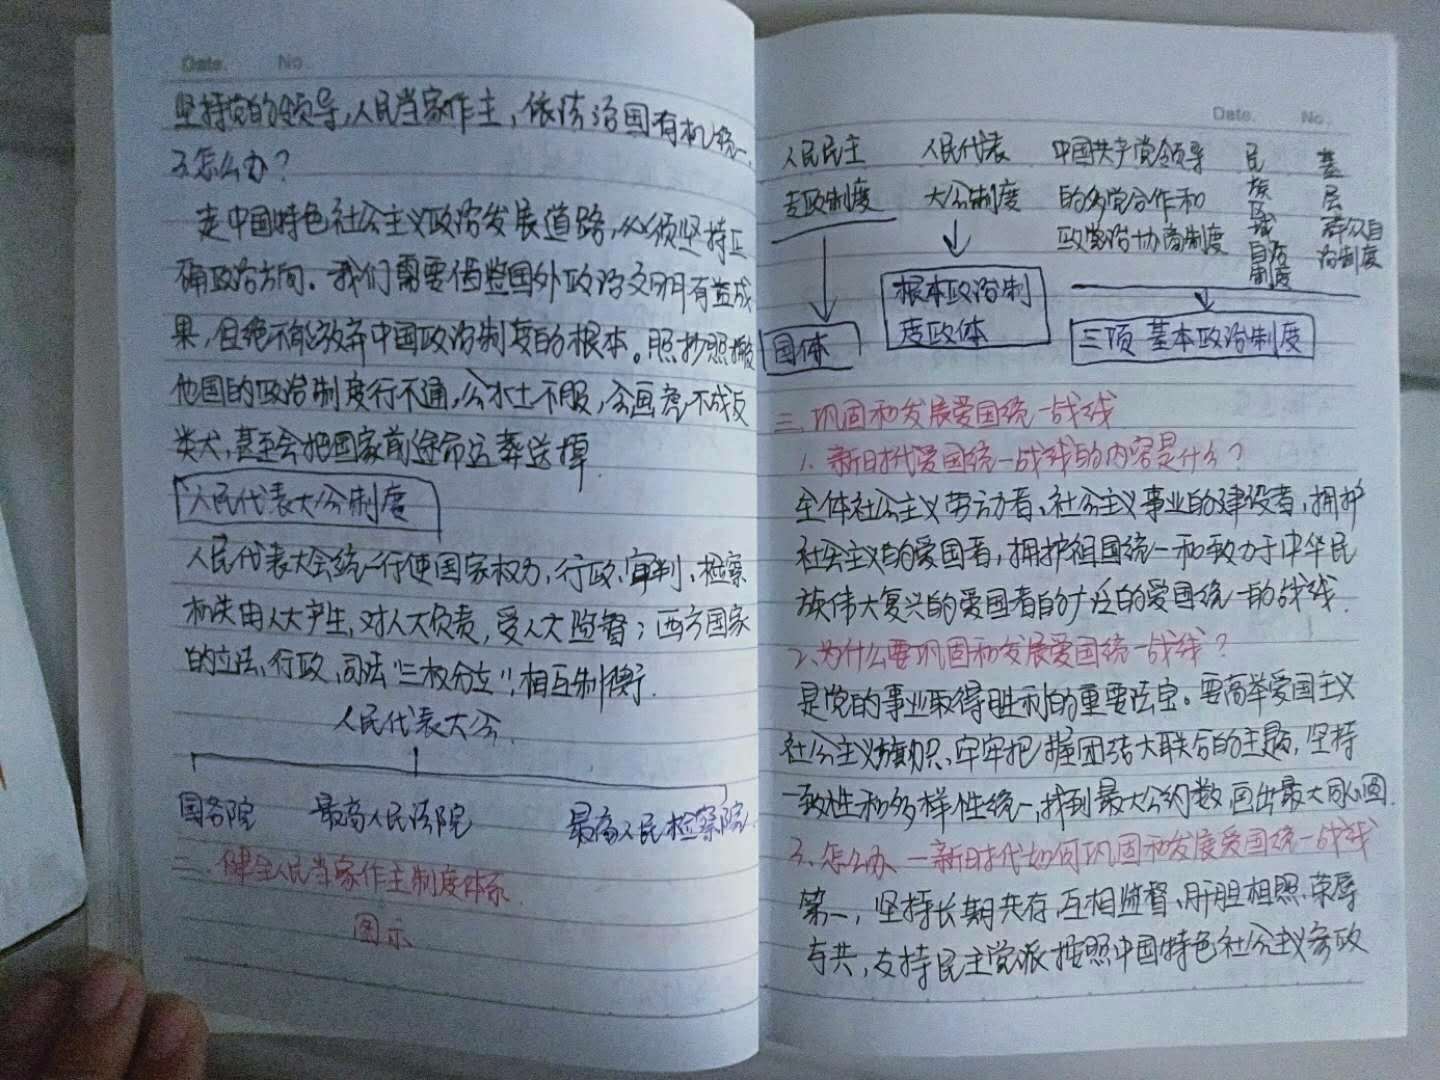 Date. No.
坚持党的领导,人民当家作主,依法治国有机统一
3怎么办?
走中国特色社会主义政治发展道路,必须坚持正
确政治方向。我们需要借鉴国外政治文明有益成
果,但绝不能放弃中国政治制度的根本。照抄照搬
他国的政治制度行不通,会水土不服,会画虎不成反
类犬,甚至会把国家前途命运葬送掉.
人民代表大会制度
人民代表大会统一行使国家权力,行政、审判、检察
机关由人大产生,对人大负责,受人大监督;西方国家
的立法、行政、司法"三权分立",相互制衡.
人民代表大会
国务院 最高人民法院 最高人民检察院
二.健全人民当家作主制度体系
图示
Date. No.
人民民主
专政制度
人民代表
大会制度
中国共产党领导
的多党合作和
政治协商制度
民族区域自治制度
基层群众自治制度
国体
根本政治制
度政体
三项基本政治制度
三.巩固和发展爱国统一战线
1.新时代爱国统一战线的内容是什么?
全体社会主义劳动者、社会主义事业的建设者,拥护
社会主义的爱国者,拥护祖国统一和致力于中华民
族伟大复兴的爱国者的广泛的爱国统一的战线.
2.为什么要巩固和发展爱国统一战线?
是党的事业取得胜利的重要法宝。要高举爱国主义
社会主义旗帜、牢牢把握团结大联合的主题,坚持
一致性和多样性统一,找到最大公约数,画出最大同心圆.
3.怎么办—新时代如何巩固和发展爱国统一战线
第一,坚持长期共存、互相监督、肝胆相照、荣辱
与共,支持民主党派按照中国特色社会主义参政